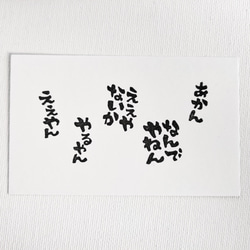 あかん
なんで
やねん
ええや
ないか
やるやん
ええやん